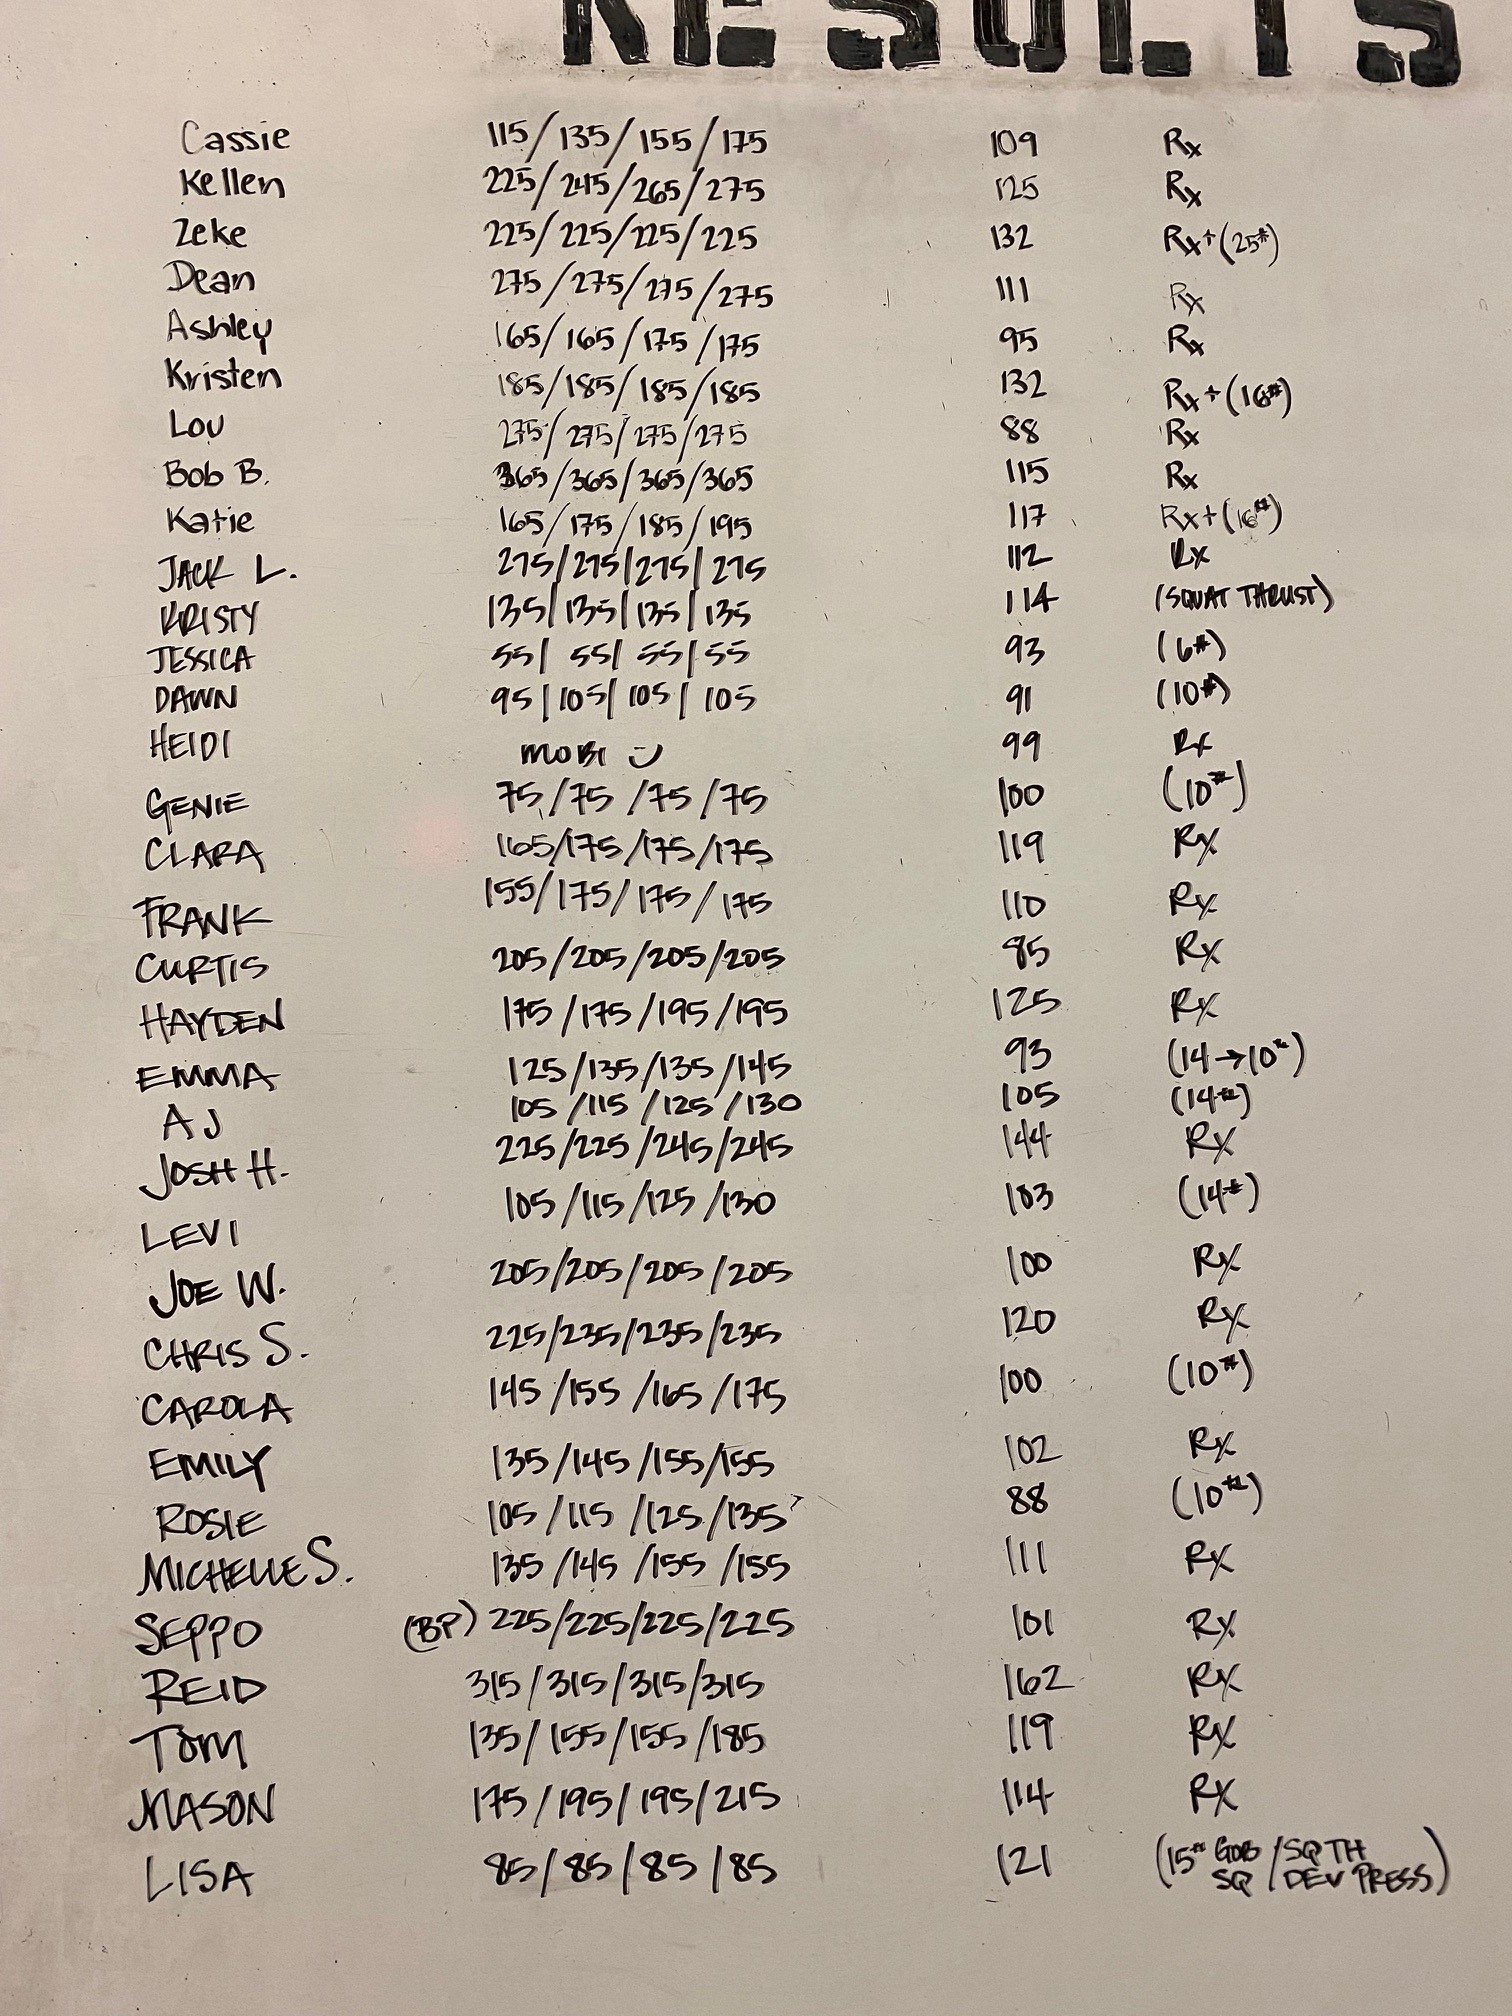 RESULTS
Cassie 115/135/155/175 109 Rx
Kellen 225/245/265/275 125 Rx
Zeke 225/225/225/225 132 Rx+(25#)
Dean 275/275/275/275 111 Rx
Ashley 165/165/175/175 95 Rx
Kristen 185/185/185/185 132 Rx+(16#)
Lou 275/275/275/275 88 Rx
Bob B. 365/365/365/365 115 Rx
Katie 165/175/185/195 117 Rx+(16#)
JACK L. 275/275/275/275 112 Rx
KRISTY 135/135/135/135 114 (SQUAT THRUST)
JESSICA 55/55/55/55 93 (6#)
DAWN 95/105/105/105 91 (10#)
HEIDI MOBI :) 99 Rx
GENIE 75/75/75/75 100 (10#)
CLARA 165/175/175/175 119 Rx
FRANK 155/175/175/175 110 Rx
CURTIS 205/205/205/205 85 Rx
HAYDEN 175/175/195/195 125 Rx
EMMA 125/135/135/145 93 (14→10#)
AJ 105/115/125/130 105 (14#)
JOSH H. 225/225/245/245 144 Rx
LEVI 105/115/125/130 103 (14#)
JOE W. 205/205/205/205 100 Rx
CHRIS S. 225/235/235/235 120 Rx
CAROLA 145/155/165/175 100 (10#)
EMILY 135/145/155/155 102 Rx
ROSIE 105/115/125/135 88 (10#)
MICHELLE S. 135/145/155/155 111 Rx
SEPPO (BP) 225/225/225/225 101 Rx
REID 315/315/315/315 162 Rx
TOM 135/155/155/185 119 Rx
MASON 175/195/195/215 114 Rx
LISA 85/85/85/85 121 (15# GOB / SQ TH
SQ / DEV PRESS)